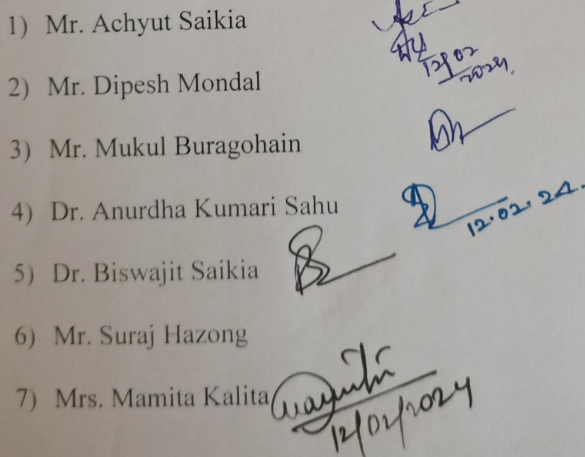 1) Mr. Achyut Saikia
12/02
2024.
2) Mr. Dipesh Mondal
3) Mr. Mukul Buragohain
4) Dr. Anurdha Kumari Sahu
12.02.24.
5) Dr. Biswajit Saikia
6) Mr. Suraj Hazong
7) Mrs. Mamita Kalita
12/02/2024